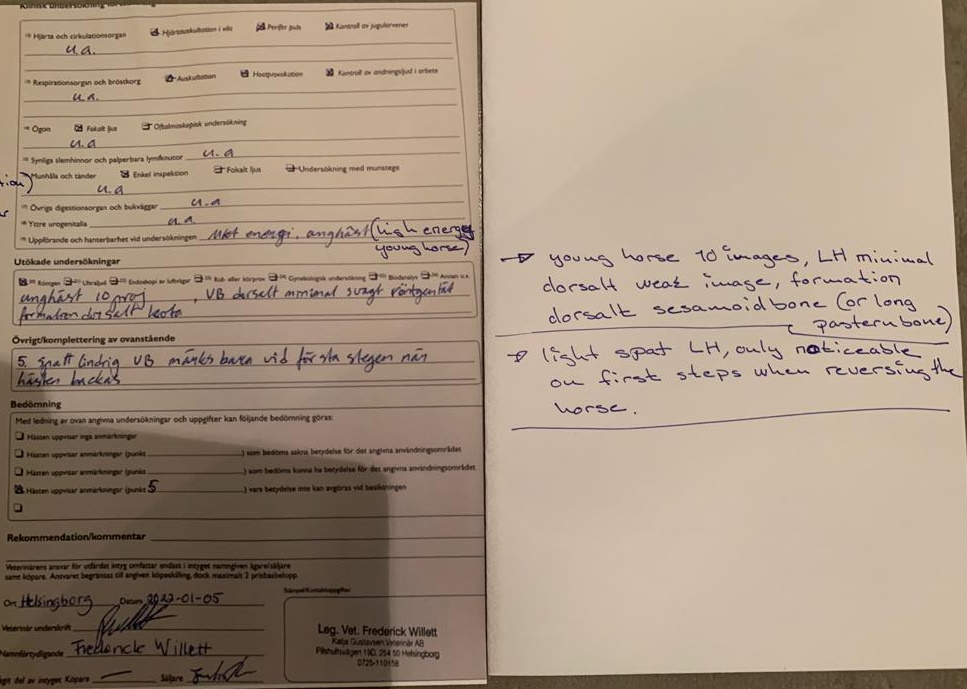 Klinisk undersökning
Hjärta och cirkulationsorgan Hjärtauskultation i vila Perifer puls Kontroll av jugularvener
u.a.
Respirationsorgan och bröstkorg Auskultation Hostprovokation Kontroll av andningsljud i arbete
u.a.
Ögon Fokalt ljus Oftalmoskopisk undersökning
u.a
Synliga slemhinnor och palperbara lymfknutor u.a
Munhåla och tänder Enkel inspektion Fokalt ljus Undersökning med munstege
u.a
Övriga digestionsorgan och bukväggar u.a
Yttre urogenitalia u.a
Uppförande och hanterbarhet vid undersökningen energi, unghäst (high energy
young horse)
Utökade undersökningar
Röntgen Ultraljud Endoskopi av luftvägar Rek. eller körprov Gynekologisk undersökning Blodanalys Annan u.s.
unghäst 10 proj, VB dorsalt minimal svagt röntgentät
formation dorsalt kota
Övrigt/komplettering av ovanstående
5. Spatt lindrig VB märks bara vid första stegen när
hästen backas
Bedömning
Med ledning av ovan angivna undersökningar och uppgifter kan följande bedömning göras:
Hästen uppvisar inga anmärkningar
Hästen uppvisar anmärkningar (punkt ) som bedöms sakna betydelse för det angivna användningsområdet
Hästen uppvisar anmärkningar (punkt ) som bedöms kunna ha betydelse för det angivna användningsområdet
Hästen uppvisar anmärkningar (punkt 5 ) vars betydelse inte kan avgöras vid besiktningen
Rekommendation/kommentar
Veterinärens ansvar för utfärdat intyg omfattar endast i intyget namngiven ägare/säljare
samt köpare. Ansvaret begränsas till angiven köpeskilling, dock maximalt 2 prisbasbelopp.
Ort Helsingborg Datum 2022-01-05
Stämpel/Kontaktuppgifter
Veterinär underskrift
Namnförtydligande Frederick Willett
Leg. Vet. Frederick Willett
Katja Gustavsen Veterinär AB
Pilshultsvägen 19D, 254 50 Helsingborg
0725-110158
del av intyget Köpare Säljare
→ young horse 10 images, LH minimal
dorsalt weak image, formation
dorsalt sesamoid bone (or long
pastern bone)
→ light spat LH, only noticeable
on first steps when reversing the
horse.